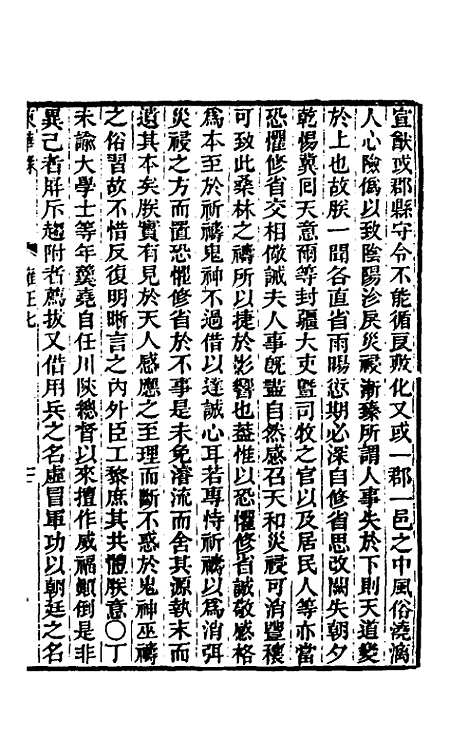 宣猷或郡縣守令不能循良敷化又或一郡一邑之中風俗澆漓
人心險僞以致陰陽沴戾災祲漸臻所謂人事失於下則天道變
於上也故朕一聞各直省雨暘愆期必深自修省思改闕失朝夕
乾惕冀囘天意爾等封疆大吏曁司牧之官以及居民人等亦當
恐懼修省交相儆誡夫人事旣盡自然感召天和災祲可消豐穰
可致此桑林之禱所以捷於影響也蓋惟以恐懼修省誠敬感格
爲本至於祈禱鬼神不過借以達誠心耳若專恃祈禱以爲消弭
災祲之方而置恐懼修省於不事是未免濬流而舍其源執末而
遺其本矣朕實有見於天人感應之至理而斷不惑於鬼神巫禱
之俗習故不惜反復明晰言之內外臣工黎庶其共體朕意〇丁
未諭大學士等年羹堯自任川陝總督以來擅作威福顚倒是非
異己者屛斥趨附者薦拔又借用兵之名虛冒軍功以朝廷之名
東華錄 雍正七